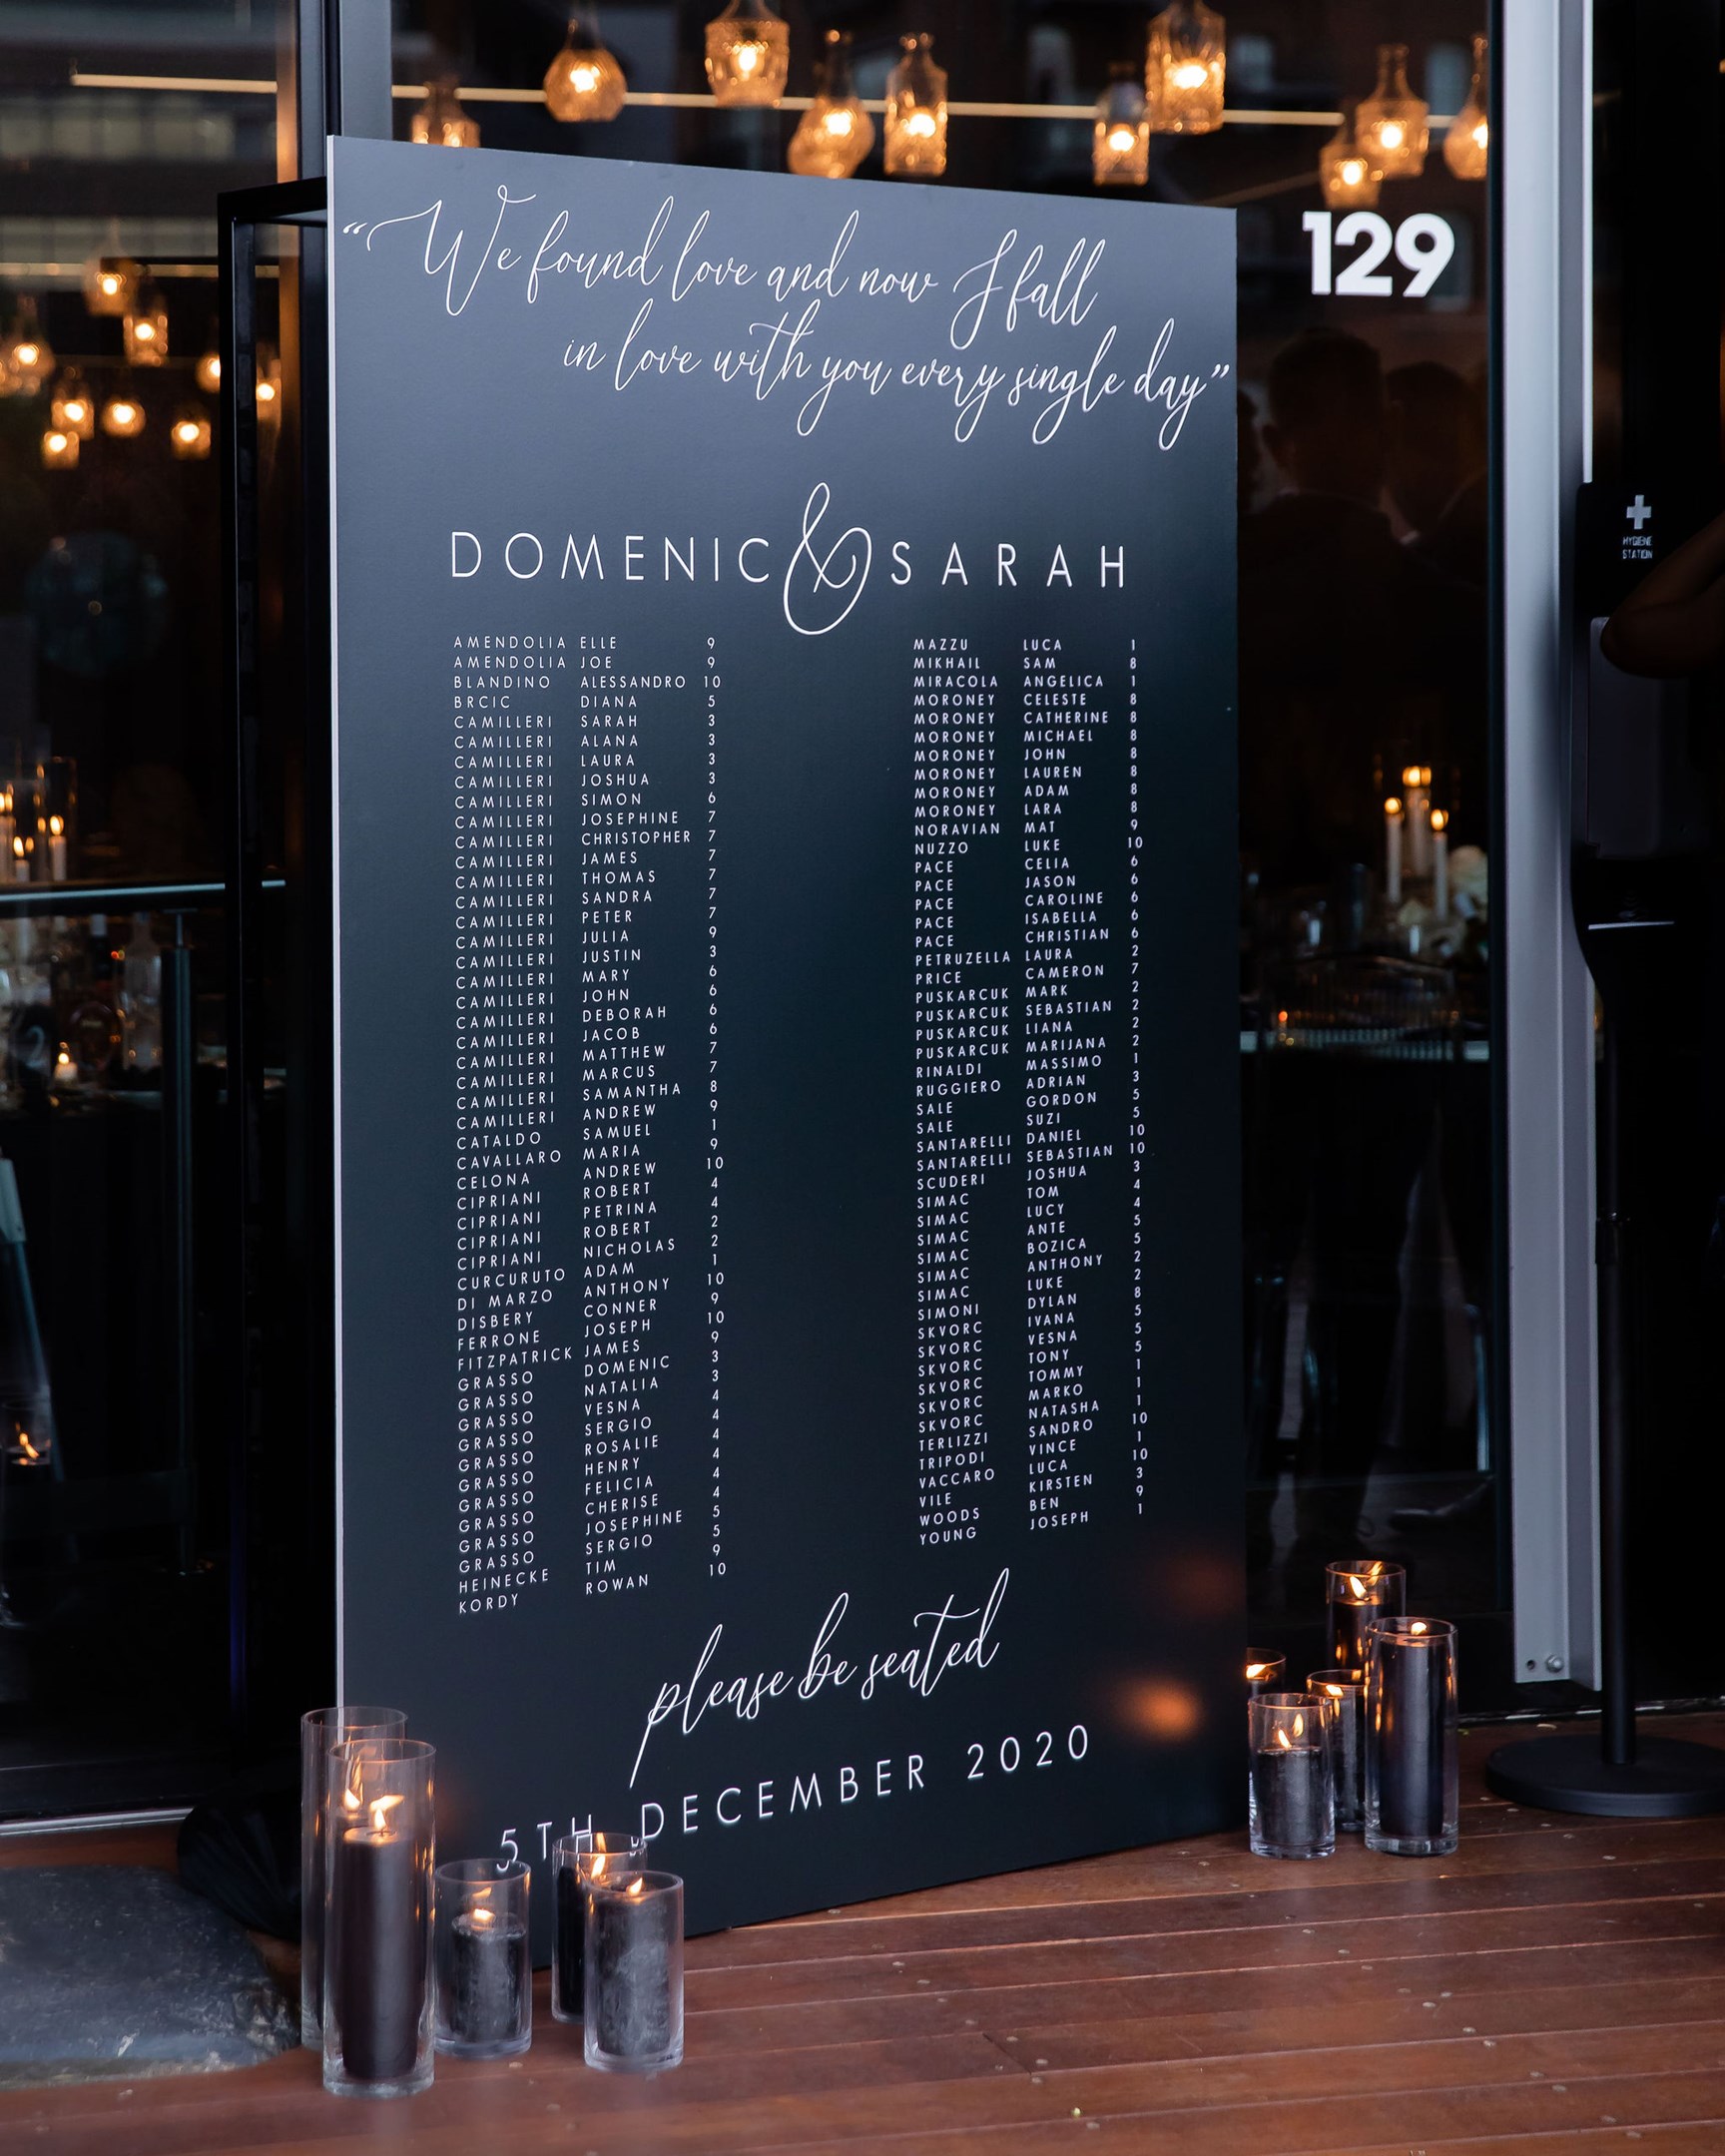 “We found love and now I fall
in love with you every single day”
129
DOMENIC & SARAH
HYGIENE
STATION
AMENDOLIA ELLE 9
AMENDOLIA JOE 9
BLANDINO ALESSANDRO 10
BRCIC DIANA 5
CAMILLERI SARAH 3
CAMILLERI ALANA 3
CAMILLERI LAURA 3
CAMILLERI JOSHUA 3
CAMILLERI SIMON 6
CAMILLERI JOSEPHINE 7
CAMILLERI CHRISTOPHER 7
CAMILLERI JAMES 7
CAMILLERI THOMAS 7
CAMILLERI SANDRA 7
CAMILLERI PETER 7
CAMILLERI JULIA 9
CAMILLERI JUSTIN 3
CAMILLERI MARY 6
CAMILLERI JOHN 6
CAMILLERI DEBORAH 6
CAMILLERI JACOB 6
CAMILLERI MATTHEW 7
CAMILLERI MARCUS 7
CAMILLERI SAMANTHA 8
CAMILLERI ANDREW 9
CATALDO SAMUEL 1
CAVALLARO MARIA 9
CELONA ANDREW 10
CIPRIANI ROBERT 4
CIPRIANI PETRINA 4
CIPRIANI ROBERT 2
CIPRIANI NICHOLAS 2
CURCURUTO ADAM 1
DI MARZO ANTHONY 10
DISBERY CONNER 9
FERRONE JOSEPH 10
FITZPATRICK JAMES 9
GRASSO DOMENIC 3
GRASSO NATALIA 3
GRASSO VESNA 4
GRASSO SERGIO 4
GRASSO ROSALIE 4
GRASSO HENRY 4
GRASSO FELICIA 4
GRASSO CHERISE 4
GRASSO JOSEPHINE 5
GRASSO SERGIO 5
HEINECKE TIM 9
KORDY ROWAN 10
MAZZU LUCA 1
MIKHAIL SAM 8
MIRACOLA ANGELICA 1
MORONEY CELESTE 8
MORONEY CATHERINE 8
MORONEY MICHAEL 8
MORONEY JOHN 8
MORONEY LAUREN 8
MORONEY ADAM 8
MORONEY LARA 8
NORAVIAN MAT 9
NUZZO LUKE 10
PACE CELIA 6
PACE JASON 6
PACE CAROLINE 6
PACE ISABELLA 6
PACE CHRISTIAN 6
PETRUZELLA LAURA 2
PRICE CAMERON 7
PUSKARCUK MARK 2
PUSKARCUK SEBASTIAN 2
PUSKARCUK LIANA 2
PUSKARCUK MARIJANA 2
RINALDI MASSIMO 1
RUGGIERO ADRIAN 3
SALE GORDON 5
SALE SUZI 5
SANTARELLI DANIEL 10
SANTARELLI SEBASTIAN 10
SCUDERI JOSHUA 3
SIMAC TOM 4
SIMAC LUCY 4
SIMAC ANTE 5
SIMAC BOZICA 5
SIMAC ANTHONY 2
SIMAC LUKE 2
SIMONI DYLAN 8
SKVORC IVANA 5
SKVORC VESNA 5
SKVORC TONY 5
SKVORC TOMMY 1
SKVORC MARKO 1
SKVORC NATASHA 1
TERLIZZI SANDRO 10
TRIPODI VINCE 1
VACCARO LUCA 10
VILE KIRSTEN 3
WOODS BEN 9
YOUNG JOSEPH 1
please be seated
5TH DECEMBER 2020